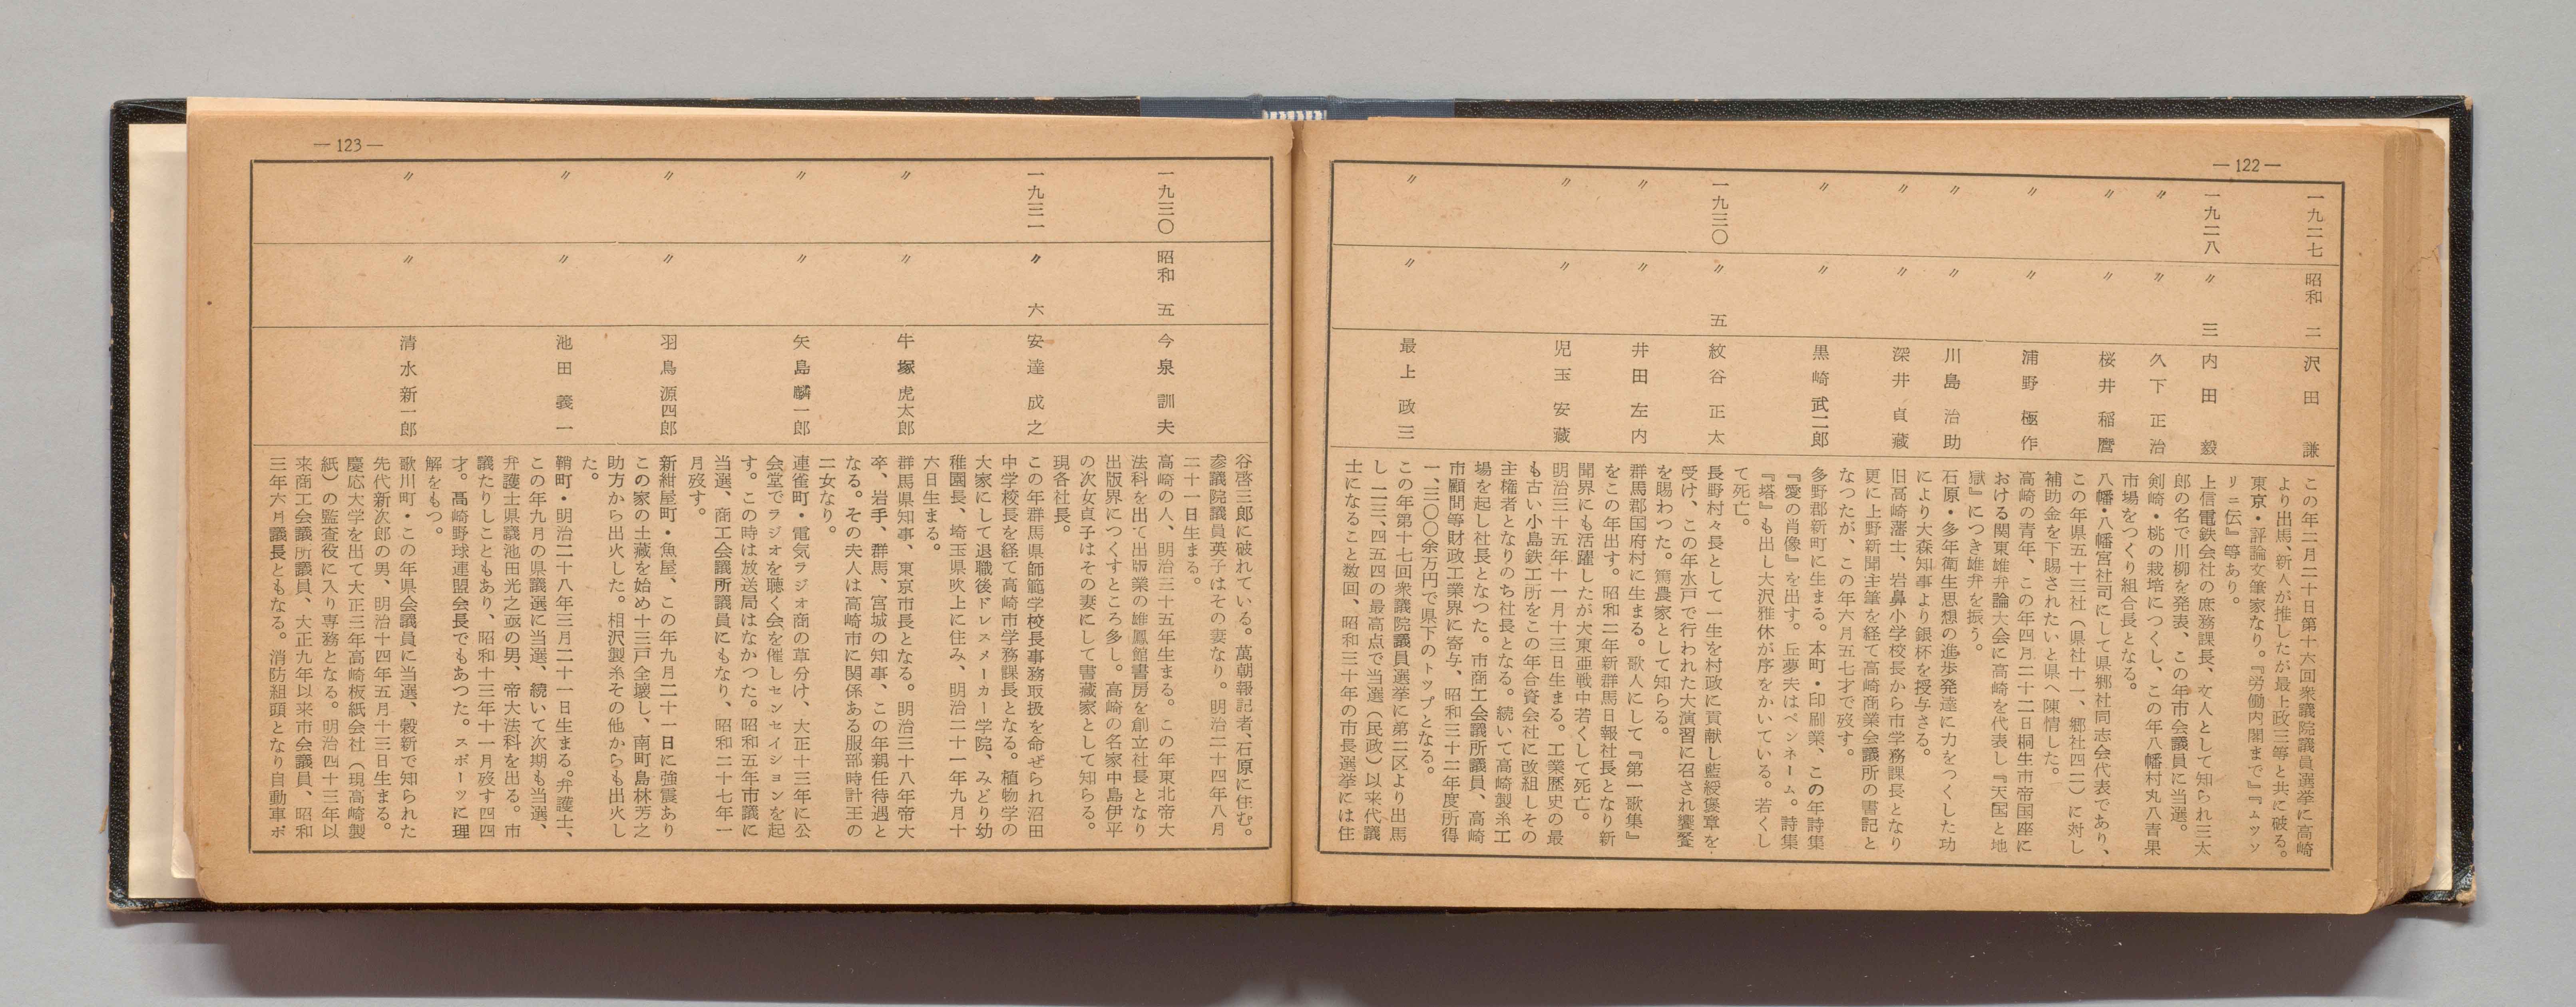 — 122 —
一九二七
昭和 二
沢田 謙
この年二月二十日第十六回衆議院議員選挙に高崎
より出馬、新人が推したが最上政三等と共に破る。
東京・評論文筆家なり。『労働内閣まで』『ムッソ
リニ伝』等あり。
一九二八
〃 三
内田 毅
上信電鉄会社の庶務課長、文人として知られ三太
郎の名で川柳を発表、この年市会議員に当選。
〃
〃
久下正治
剣崎・桃の栽培につくし、この年八幡村丸八青果
市場をつくり組合長となる。
〃
〃
桜井稲麿
八幡・八幡宮社司にして県郷社同志会代表であり、
この年県五十三社（県社十一、郷社四二）に対し
補助金を下賜されたいと県へ陳情した。
〃
〃
浦野極作
高崎の青年、この年四月二十二日桐生市帝国座に
おける関東雄弁論大会に高崎を代表し『天国と地
獄』につき雄弁を振う。
〃
〃
川島治助
石原・多年衛生思想の進歩発達に力をつくした功
により大森知事より銀杯を授与さる。
〃
〃
深井貞蔵
旧高崎藩士、岩鼻小学校長から市学務課長となり
更に上野新聞主筆を経て高崎商業会議所の書記と
なつたが、この年六月五七才で歿す。
〃
〃
黒崎武二郎
多野郡新町に生まる。本町・印刷業、この年詩集
『愛の肖像』を出す。丘夢夫はペンネーム。詩集
『塔』も出し大沢雅休が序をかいている。若くし
て死亡。
一九三〇
〃 五
紋谷正太
長野村々長として一生を村政に貢献し藍綬褒章を
受け、この年水戸で行われた大演習に召され饗餐
を賜わつた。篤農家として知らる。
〃
〃
井田左内
群馬郡国府村に生まる。歌人にして『第一歌集』
をこの年出す。昭和二年新群馬日報社長となり新
聞界にも活躍したが大東亜戦中若くして死亡。
〃
〃
児玉安蔵
明治三十五年十一月十三日生まる。工業歴史の最
も古い小島鉄工所をこの年合資会社に改組しその
主権者となりのち社長となる。続いて高崎製糸工
場を起し社長となつた。市商工会議所議員、高崎
市顧問等財政工業界に寄与、昭和三十二年度所得
一、三〇〇余万円で県下のトップとなる。
〃
〃
最上政三
この年第十七回衆議院議員選挙に第二区より出馬
し一三、四五四の最高点で当選（民政）以来代議
士になること数回、昭和三十年の市長選挙には住
— 123 —
谷啓三郎に破れている。萬朝報記者、石原に住む。
参議院議員英子はその妻なり。明治二十四年八月
二十一日生まる。
一九三〇
昭和 五
今泉訓夫
高崎の人、明治三十五年生まる。この年東北帝大
法科を出て出版業の雄鳳館書房を創立社長となり
出版界につくすところ多し。高崎の名家中島伊平
の次女貞子はその妻にして書蔵家として知らる。
現各社長。
一九三一
〃 六
安達成之
この年群馬県師範学校長事務取扱を命ぜられ沼田
中学校長を経て高崎市学務課長となる。植物学の
大家にして退職後ドレスメーカー学院、みどり幼
稚園長、埼玉県吹上に住み、明治二十一年九月十
六日生まる。
〃
〃
牛塚虎太郎
群馬県知事、東京市長となる。明治三十八年帝大
卒、岩手、群馬、宮城の知事、この年親任待遇と
なる。その夫人は高崎市に関係ある服部時計王の
二女なり。
〃
〃
矢島麟一郎
連雀町・電気ラジオ商の草分け、大正十三年に公
会堂でラジオを聴く会を催しセンセイションを起
す。この時は放送局はなかつた。昭和五年市議に
当選、商工会議所議員にもなり、昭和二十七年一
月歿す。
〃
〃
羽鳥源四郎
新紺屋町・魚屋、この年九月二十一日に強震あり
この家の土蔵を始め十三戸全壊し、南町島林芳之
助方から出火した。相沢製糸その他からも出火し
た。
〃
〃
池田義一
鞘町・明治二十八年三月二十一日生まる。弁護士、
この年九月の県議選に当選、続いて次期も当選、
弁護士県議池田光之亟の男、帝大法科を出る。市
議たりしこともあり、昭和十三年十一月歿す四四
才。高崎野球連盟会長でもあつた。スポーツに理
解をもつ。
〃
〃
清水新一郎
歌川町・この年県会議員に当選、穀新で知られた
先代新次郎の男、明治十四年五月十三日生まる。
慶応大学を出て大正三年高崎板紙会社（現高崎製
紙）の監査役に入り専務となる。明治四十三年以
来商工会議所議員、大正九年以来市会議員、昭和
三年六月議長ともなる。消防組頭となり自動車ポ